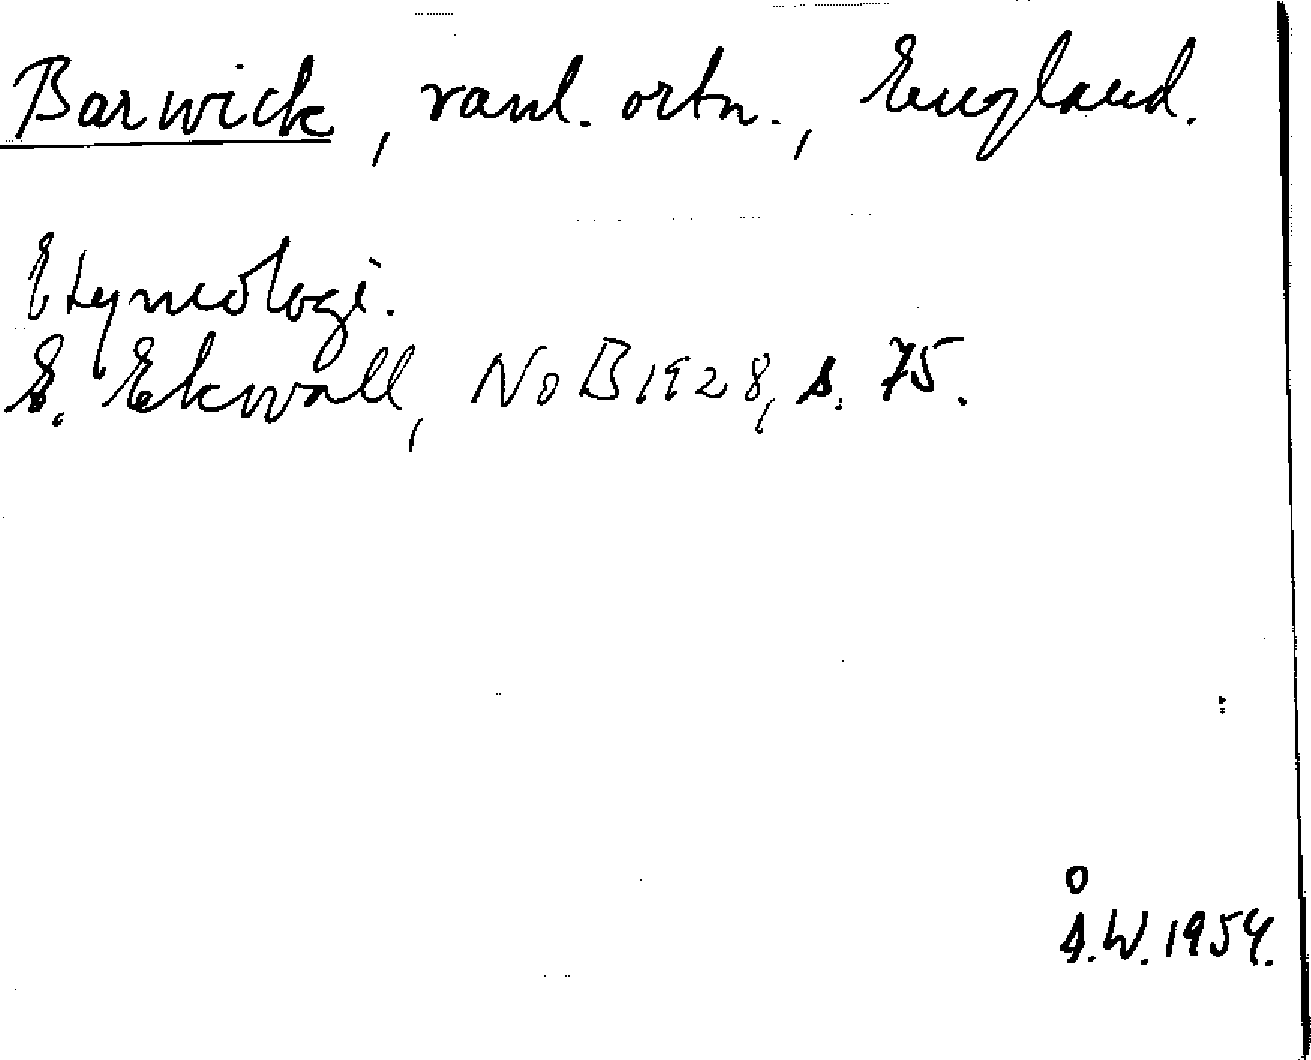 Barwick, vanl. ortn., England.
Etymologi.
E. Ekwall, NoB 1928, s. 75.
Å.W. 1954.